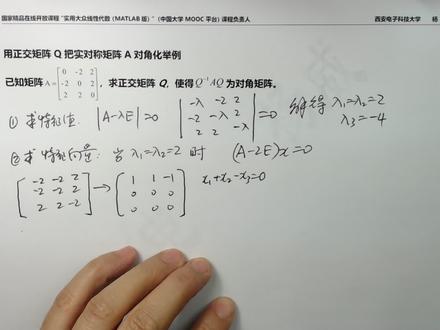 国家精品在线开放课程“实用大众线性代数(MATLAB 版)”(中国大学 MOOC 平台)课程负责人 西安电子科技大学 杨
用正交矩阵 Q 把实对称矩阵 A 对角化举例
已知矩阵 A = [0 -2 2; -2 0 2; 2 2 0],求正交矩阵 Q,使得 Q⁻¹AQ 为对角矩阵。
① 求特征值: |A-λE|=0 |-λ -2 2; -2 -λ 2; 2 2 -λ|=0 解得 λ₁=λ₂=2
λ₃=-4
② 求特征向量: 当 λ₁=λ₂=2 时 (A-2E)x=0
[-2 -2 2; -2 -2 2; 2 2 -2] → [1 1 -1; 0 0 0; 0 0 0] x₁+x₂-x₃=0